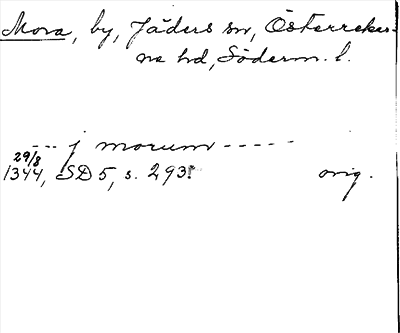 Mora, by, Jäders sn, Österrekar-
ne hd, Söderm. l.
--- j morum -----
29/8
1344, SD 5, s. 293. orig.